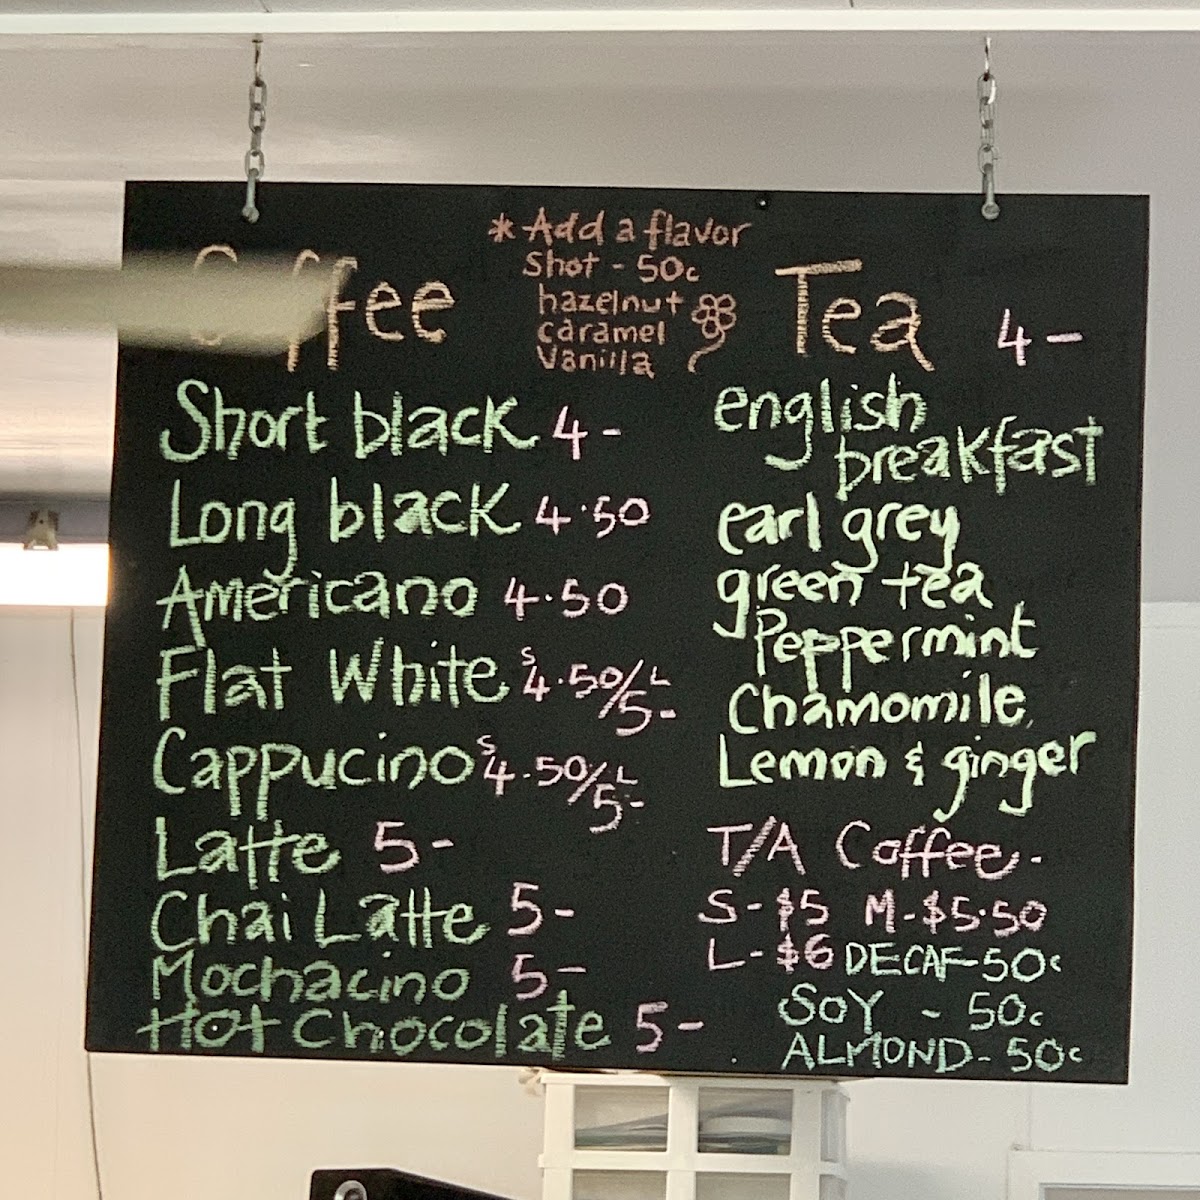 Coffee
* Add a flavor
Shot - 50c
hazelnut
caramel
Vanilla
Short black 4-
Long black 4.50
Americano 4.50
Flat White S 4.50/L 5-
Cappucino S 4.50/L 5-
Latte 5-
Chai Latte 5-
Mochacino 5-
Hot Chocolate 5-
Tea 4-
english
breakfast
earl grey
green tea
Peppermint
Chamomile
Lemon & ginger
T/A Coffee-
S-$5 M-$5.50
L-$6 DECAF-50c
SOY - 50c
ALMOND-50c